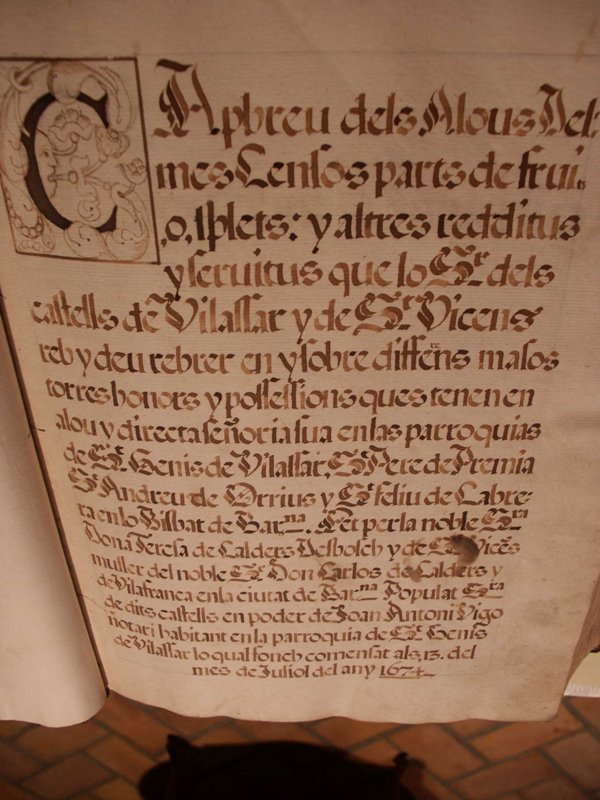 CApbreu dels Alous Del:
mes Censos parts de frui.
,o, splets: y altres redditus
y seruitus que lo Sr. dels
castells de Vilassar y de St. Vicens
reb y deu rebrer en y sobre differēns masos
torres honors y possessions ques tenen en
alou y directa señoria sua en las parroquias
de St. Genis de Vilassar, St. Pere de Premia
St. Andreu de Orrius y St. feliu de Cabre-
ra en lo Bisbat de Barna. Fet per la noble Sra
Dona Teresa de Calders Desbosch y de St. Vicēs
muller del noble Sr. Don Carlos de Calders y
de Vilafranca en la ciutat de Barna Populat Sra
de dits castells en poder de Joan Antoni Vigo
notari habitant en la parroquia de St. Genis
de Vilassar lo qual fonch comensat als, 13. del
mes de Juliol del any 1674